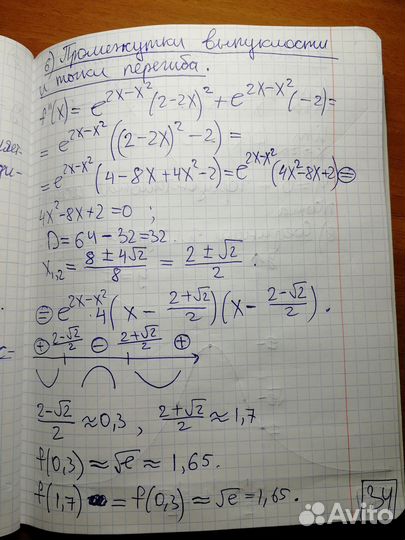 6) Промежутки выпуклости
и точки перегиба.
f''(x) = e^{2x-x²}(2-2x)² + e^{2x-x²}(-2) =
= e^{2x-x²}((2-2x)² - 2) =
= e^{2x-x²}(4-8x+4x²-2) = e^{2x-x²}(4x²-8x+2) ⊜
4x²-8x+2=0 ;
D = 64 - 32 = 32.
x_{1,2} = \frac{8 ± 4√2}{8} = \frac{2 ± √2}{2} .
⊜ e^{2x-x²}·4(x - \frac{2+√2}{2})(x - \frac{2-√2}{2}).
⊕ \frac{2-√2}{2} ⊖ \frac{2+√2}{2} ⊕
\frac{2-√2}{2} ≈ 0,3 , \frac{2+√2}{2} ≈ 1,7
f(0,3) ≈ √e ≈ 1,65.
f(1,7) = f(0,3) ≈ √e = 1,65.
34
Avito